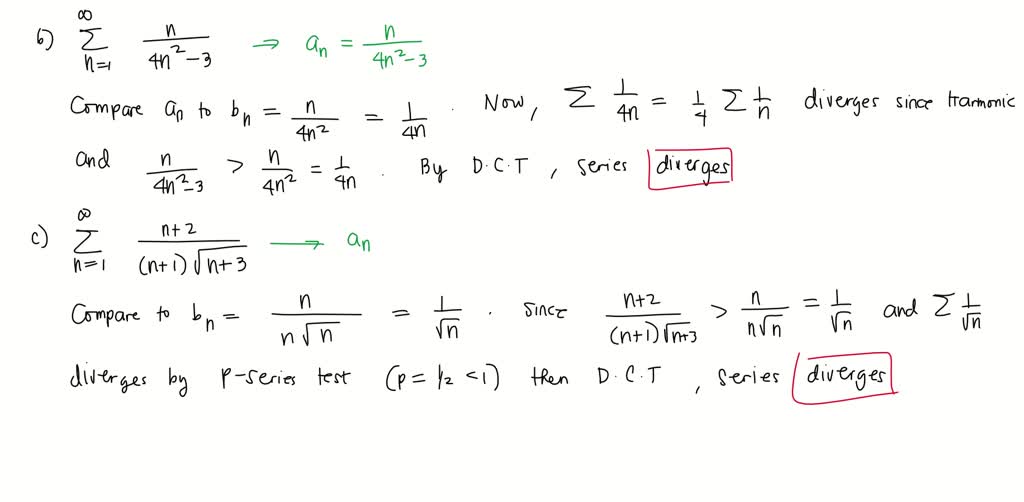 b) ∞ Σ n=1 n/(4n²−3) → aₙ = n/(4n²−3)
Compare aₙ to bₙ = n/(4n²) = 1/(4n) . Now, Σ 1/(4n) = 1/4 Σ 1/n diverges since Harmonic
and n/(4n²−3) > n/(4n²) = 1/(4n) . By D.C.T , series diverges
c) ∞ Σ n=1 (n+2)/((n+1)√(n+3)) → aₙ
Compare to bₙ = n/(n√n) = 1/√n . since (n+2)/((n+1)√(n+3)) > n/(n√n) = 1/√n and Σ 1/√n
diverges by p-series test (p = 1/2 < 1) then D.C.T , series diverges